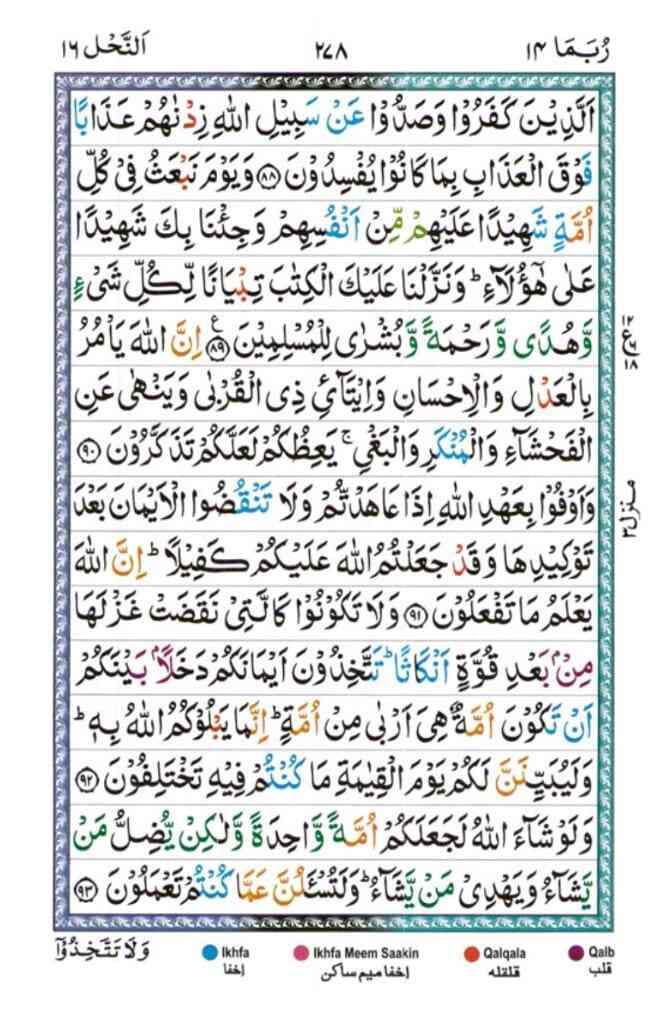 رُبَمَا ١٤
٢٧٨
اَلنَّحْل ١٦
اَلَّذِيْنَ كَفَرُوْا وَصَدُّوْا عَنْ سَبِيْلِ اللّٰهِ زِدْنٰهُمْ عَذَابًا
فَوْقَ الْعَذَابِ بِمَا كَانُوْا يُفْسِدُوْنَ ﴿٨٨﴾ وَيَوْمَ نَبْعَثُ فِيْ كُلِّ
اُمَّةٍ شَهِيْدًا عَلَيْهِمْ مِّنْ اَنْفُسِهِمْ وَجِئْنَا بِكَ شَهِيْدًا
عَلٰى هٰٓؤُلَآءِ ؕ وَنَزَّلْنَا عَلَيْكَ الْكِتٰبَ تِبْيَانًا لِّكُلِّ شَيْءٍ
وَّهُدًى وَّرَحْمَةً وَّبُشْرٰى لِلْمُسْلِمِيْنَ ﴿٨٩﴾ ع اِنَّ اللّٰهَ يَاْمُرُ
بِالْعَدْلِ وَالْاِحْسَانِ وَاِيْتَآئِ ذِي الْقُرْبٰى وَيَنْهٰى عَنِ
الْفَحْشَآءِ وَالْمُنْكَرِ وَالْبَغْيِ ۚ يَعِظُكُمْ لَعَلَّكُمْ تَذَكَّرُوْنَ ﴿٩٠﴾
وَاَوْفُوْا بِعَهْدِ اللّٰهِ اِذَا عَاهَدْتُّمْ وَلَا تَنْقُضُوا الْاَيْمَانَ بَعْدَ
تَوْكِيْدِهَا وَقَدْ جَعَلْتُمُ اللّٰهَ عَلَيْكُمْ كَفِيْلًا ؕ اِنَّ اللّٰهَ
يَعْلَمُ مَا تَفْعَلُوْنَ ﴿٩١﴾ وَلَا تَكُوْنُوْا كَالَّتِيْ نَقَضَتْ غَزْلَهَا
مِنْۢ بَعْدِ قُوَّةٍ اَنْكَاثًا ؕ تَتَّخِذُوْنَ اَيْمَانَكُمْ دَخَلًاۢ بَيْنَكُمْ
اَنْ تَكُوْنَ اُمَّةٌ هِيَ اَرْبٰى مِنْ اُمَّةٍ ؕ اِنَّمَا يَبْلُوْكُمُ اللّٰهُ بِهٖ ؕ
وَلَيُبَيِّنَنَّ لَكُمْ يَوْمَ الْقِيٰمَةِ مَا كُنْتُمْ فِيْهِ تَخْتَلِفُوْنَ ﴿٩٢﴾
وَلَوْ شَآءَ اللّٰهُ لَجَعَلَكُمْ اُمَّةً وَّاحِدَةً وَّلٰكِنْ يُّضِلُّ مَنْ
يَّشَآءُ وَيَهْدِيْ مَنْ يَّشَآءُ ؕ وَلَتُسْـَٔلُنَّ عَمَّا كُنْتُمْ تَعْمَلُوْنَ ﴿٩٣﴾
١٢
ع
٦
١٨
منزل ٣
وَلَا تَتَّخِذُوْٓا
Ikhfa
اخفا
Ikhfa Meem Saakin
اخفا میم ساکن
Qalqala
قلقله
Qalb
قلب